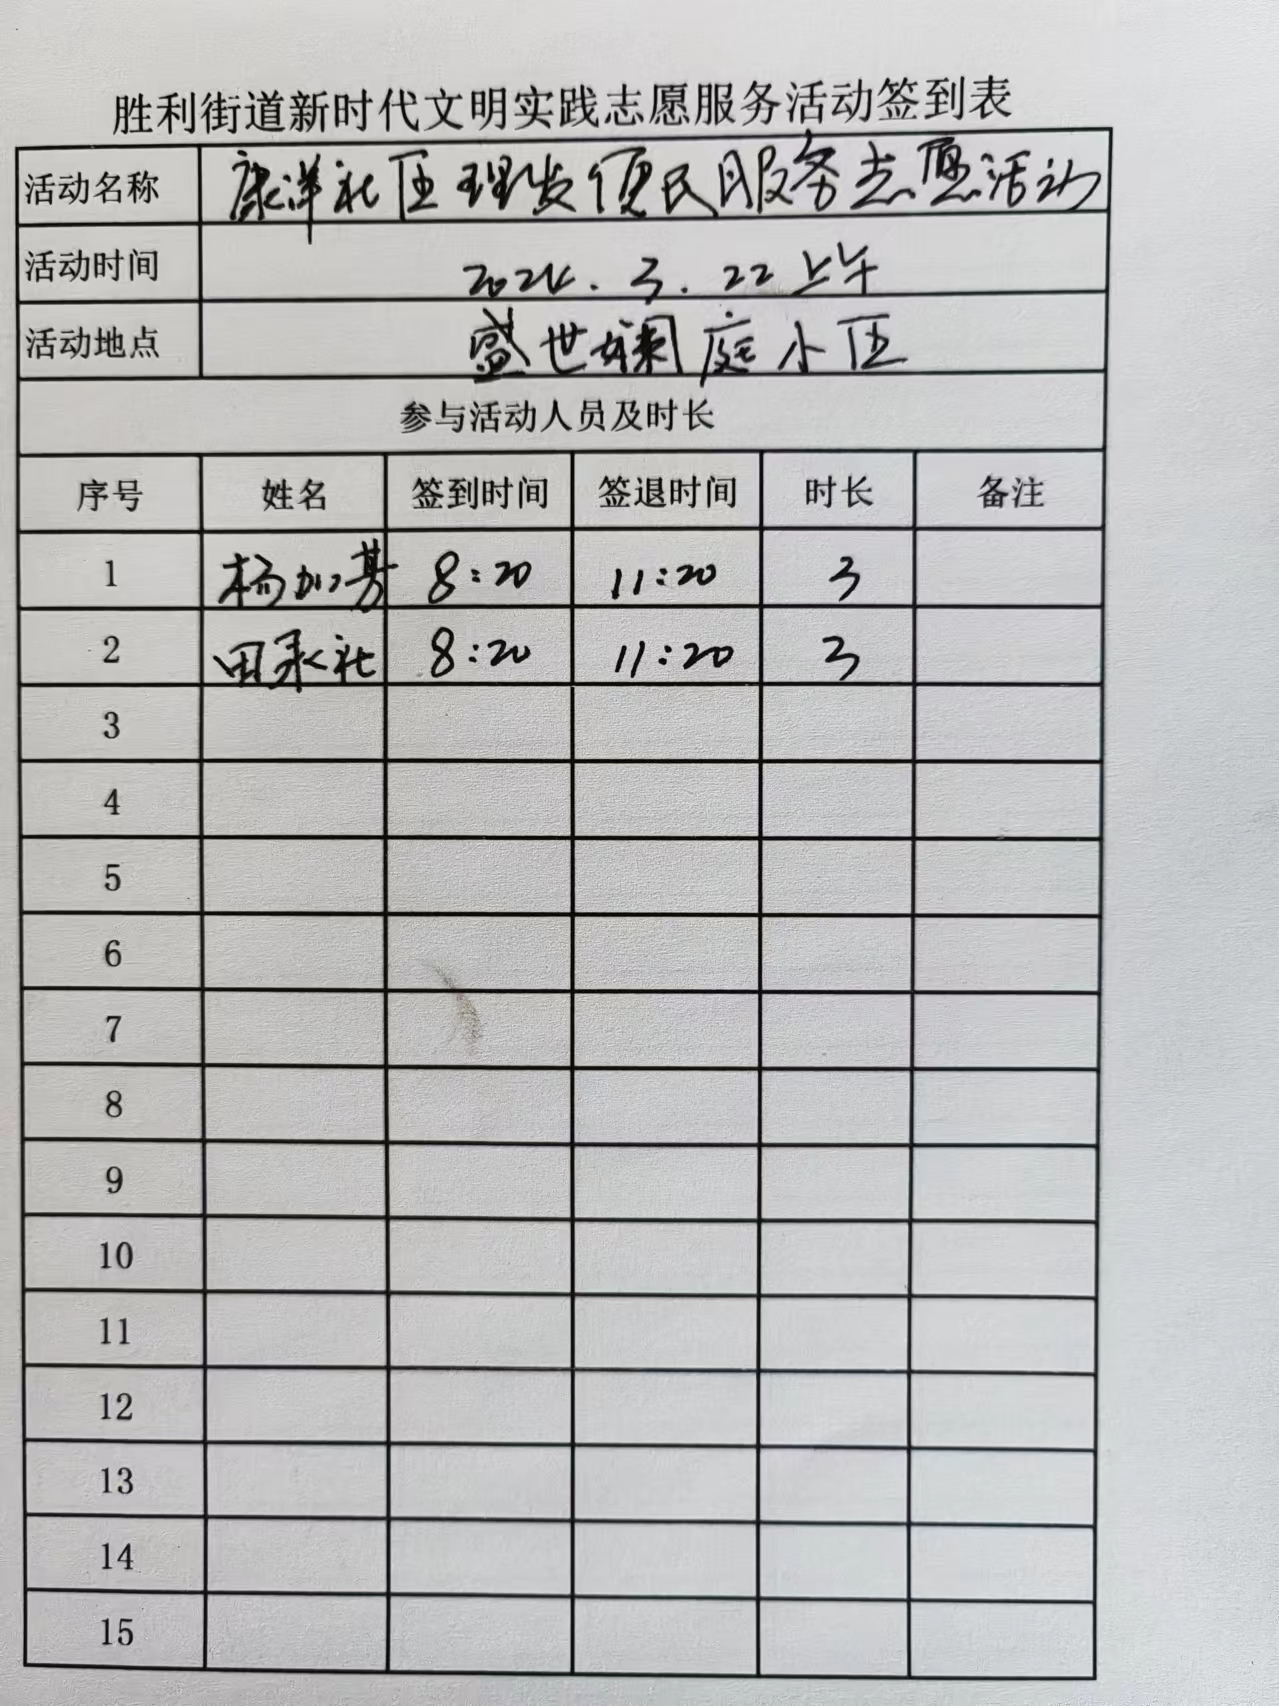 胜利街道新时代文明实践志愿服务活动签到表
活动名称 康洋社区理发便民服务志愿活动
活动时间 2024.3.22上午
活动地点 盛世斓庭小区
参与活动人员及时长
序号 姓名 签到时间 签退时间 时长 备注
1 杨加 8:20 11:20 3
2 田承社 8:20 11:20 3
3
4
5
6
7
8
9
10
11
12
13
14
15